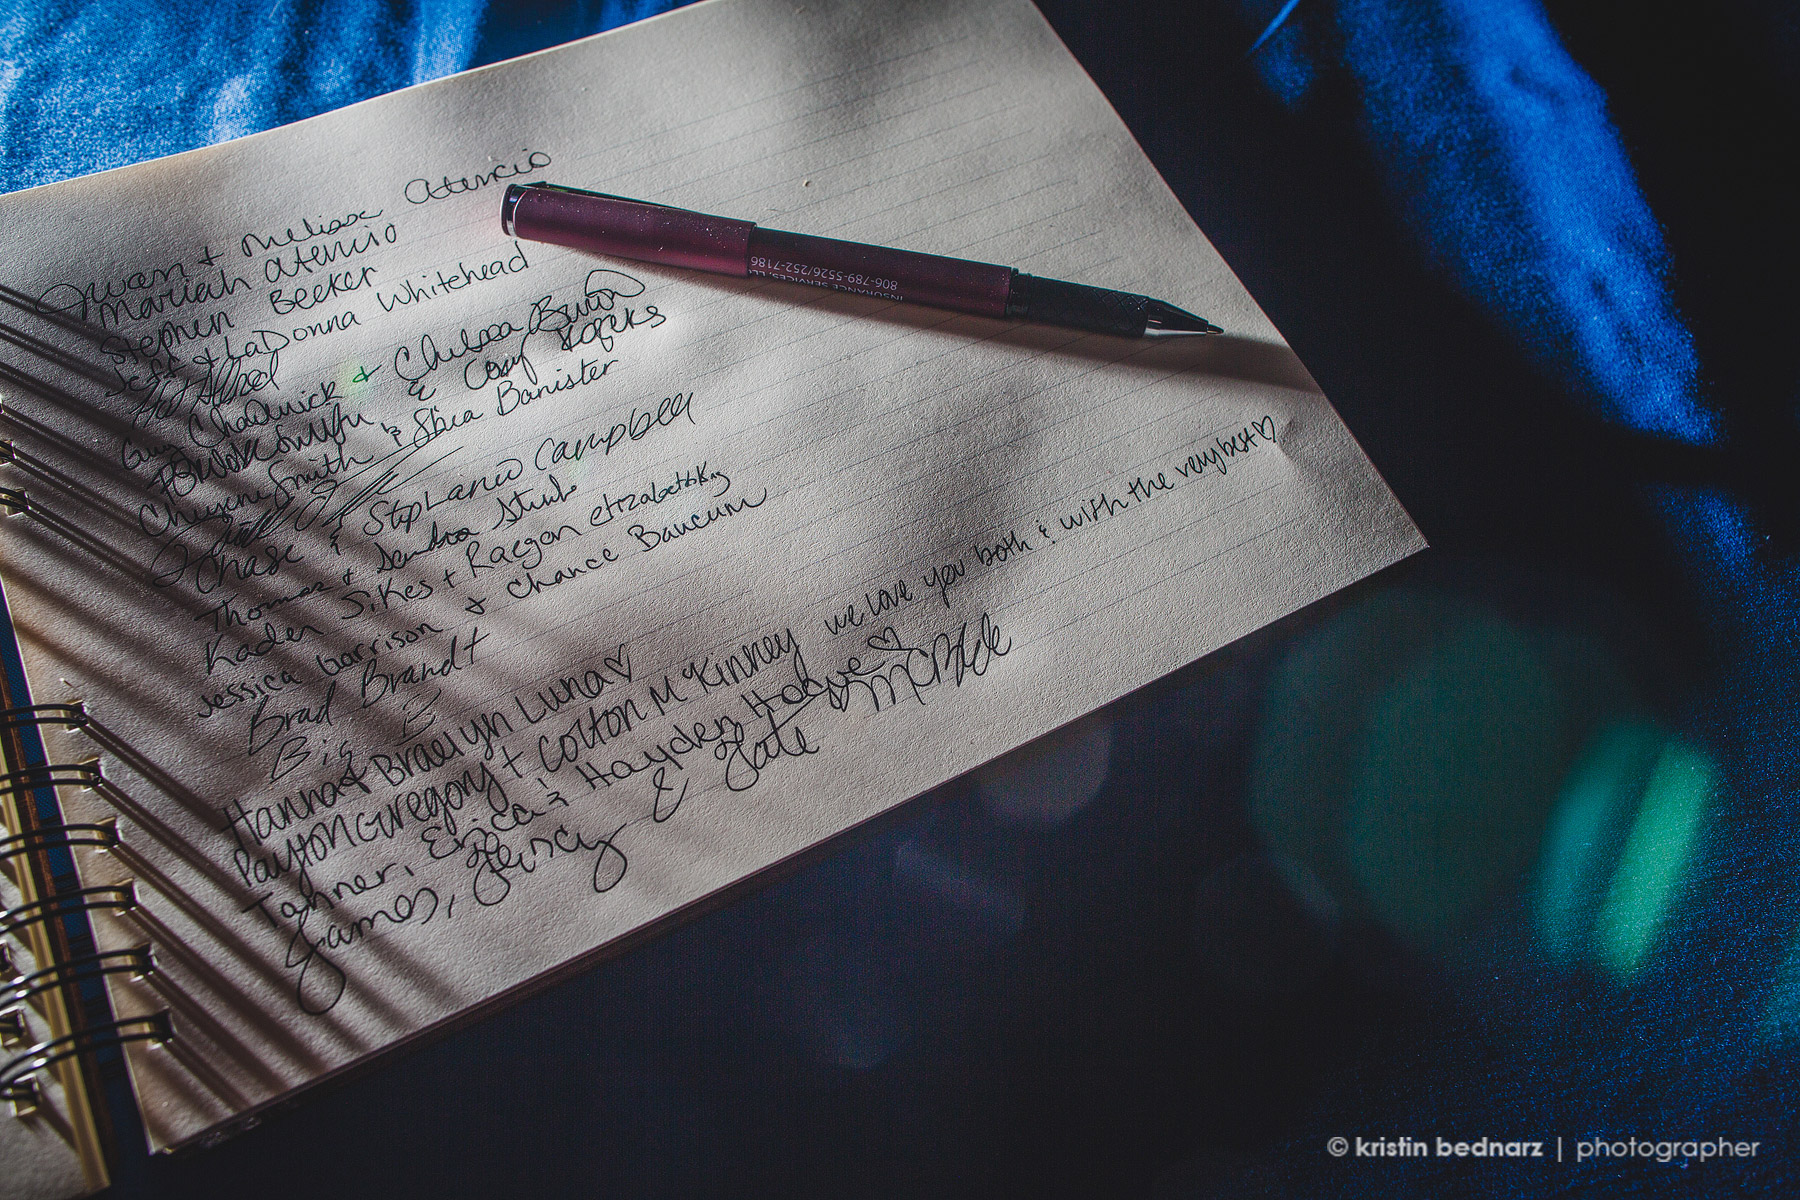 Juan & Melissa Atencio
Mariah Atencio
Stephen Becker
Jeff & LaDonna Whitehead
Guy Chadwick & Chelsea
& Cory Rogers
Cheyene Smith & Shea Banister
Chase & Stephanie Campbell
Thomas & Sandra
Kaden Sikes + Raegan elizabeth
Jessica Garrison & Chance Baucum
Brad Brandt
Big B
Hanna & Braelyn Luna♡
Payton Gregory + Colton McKinney we love you both & with the very best♡
Tanner, Erica & Hayden Hogue♡
James, & Tate McBride
806-789-5526/252-7186
INSURANCE SERVICES,
© kristin bednarz | photographer